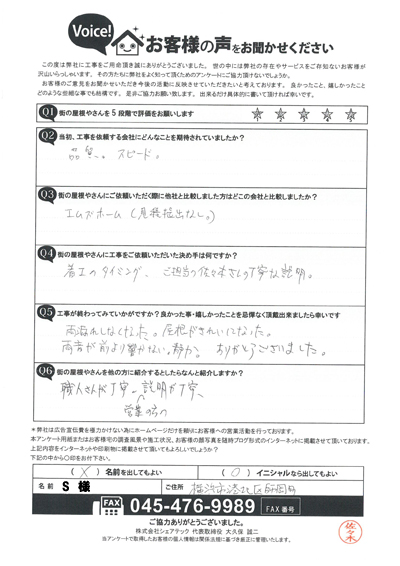 Voice!
お客様の声をお聞かせください
この度は弊社に工事をご用命頂き誠にありがとうございました。世の中には弊社の存在やサービスをご存知ないお客様が
沢山いらっしゃいます。その方たちに弊社をよく知って頂くためのアンケートにご協力頂けないでしょうか。
お客様のご意見をお聞かせいただき今後の活動に反映させていただきたいと考えております。良かったこと、嬉しかったこと
どのような些細な事でも結構です。是非ご協力お願い致します。出来るだけ具体的に書いて頂ければ幸いです。
Q1 街の屋根やさんを5段階で評価をお願いします
Q2 当初、工事を依頼する会社にどんなことを期待されていましたか？
品質。スピード。
Q3 街の屋根やさんにご依頼いただく際に他社と比較しました方はどこの会社と比較しましたか？
エムズホーム(見積提出なし。)
Q4 街の屋根やさんに工事をご依頼いただいた決め手は何ですか？
着工のタイミング、ご担当の佐々木さんの丁寧な説明。
Q5 工事が終わってみていかがですか？良かった事・嬉しかったことを忌憚なく頂戴出来ましたら幸いです
雨漏れしなくなった。屋根がきれいになった。
雨音が前より響かない。静か。ありがとうございました。
Q6 街の屋根やさんを他の方に紹介するとしたらなんと紹介しますか？
職人さんが丁寧、説明が丁寧、
営業の方の
＊弊社は広告宣伝費を極力かけない為にホームページだけを頼りにお客様への営業活動を行っております。
本アンケート用紙またはお客様宅の調査風景や施工状況、お客様の顔写真を随時ブログ形式のインターネットに掲載させて頂いております。
上記内容をインターネットや印刷物に掲載させて頂いてもよろしいでしょうか？
下記の中から○印をお付下さい。
(×)名前を出してもよい (○)イニシャルなら出してもよい
名前 S 様 ご住所 横浜市港北区
FAX 045-476-9989 FAX番号
ご協力ありがとうございました。
株式会社シェアテック 代表取締役 大久保 誠二
当アンケートで取得したお客様の個人情報は関係法規に基づき厳正に管理いたします。
佐々木